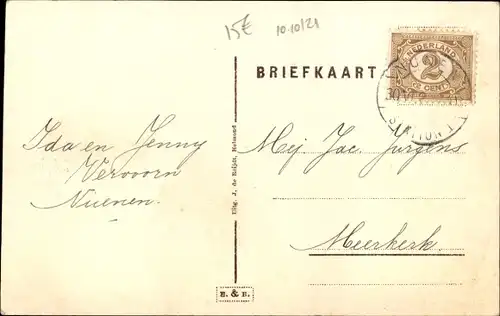 15€
10.10/21
BRIEFKAART
NEDERLAND
2
CENT
STATION
Ida en Jenny
Verooorn
Nuenen.
Uitg. J. de Reijdt, Helmond
Mej. Jac. Jurgens
Meerkerk.
E. & B.